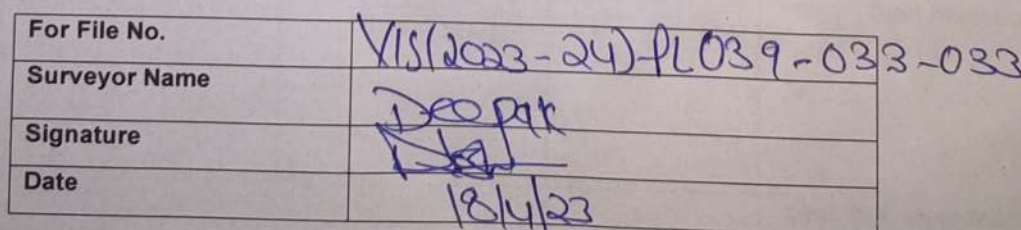 For File No. VIS(2023-24)-PL039-033-033
Surveyor Name Deepak
Signature
Date 18/4/23